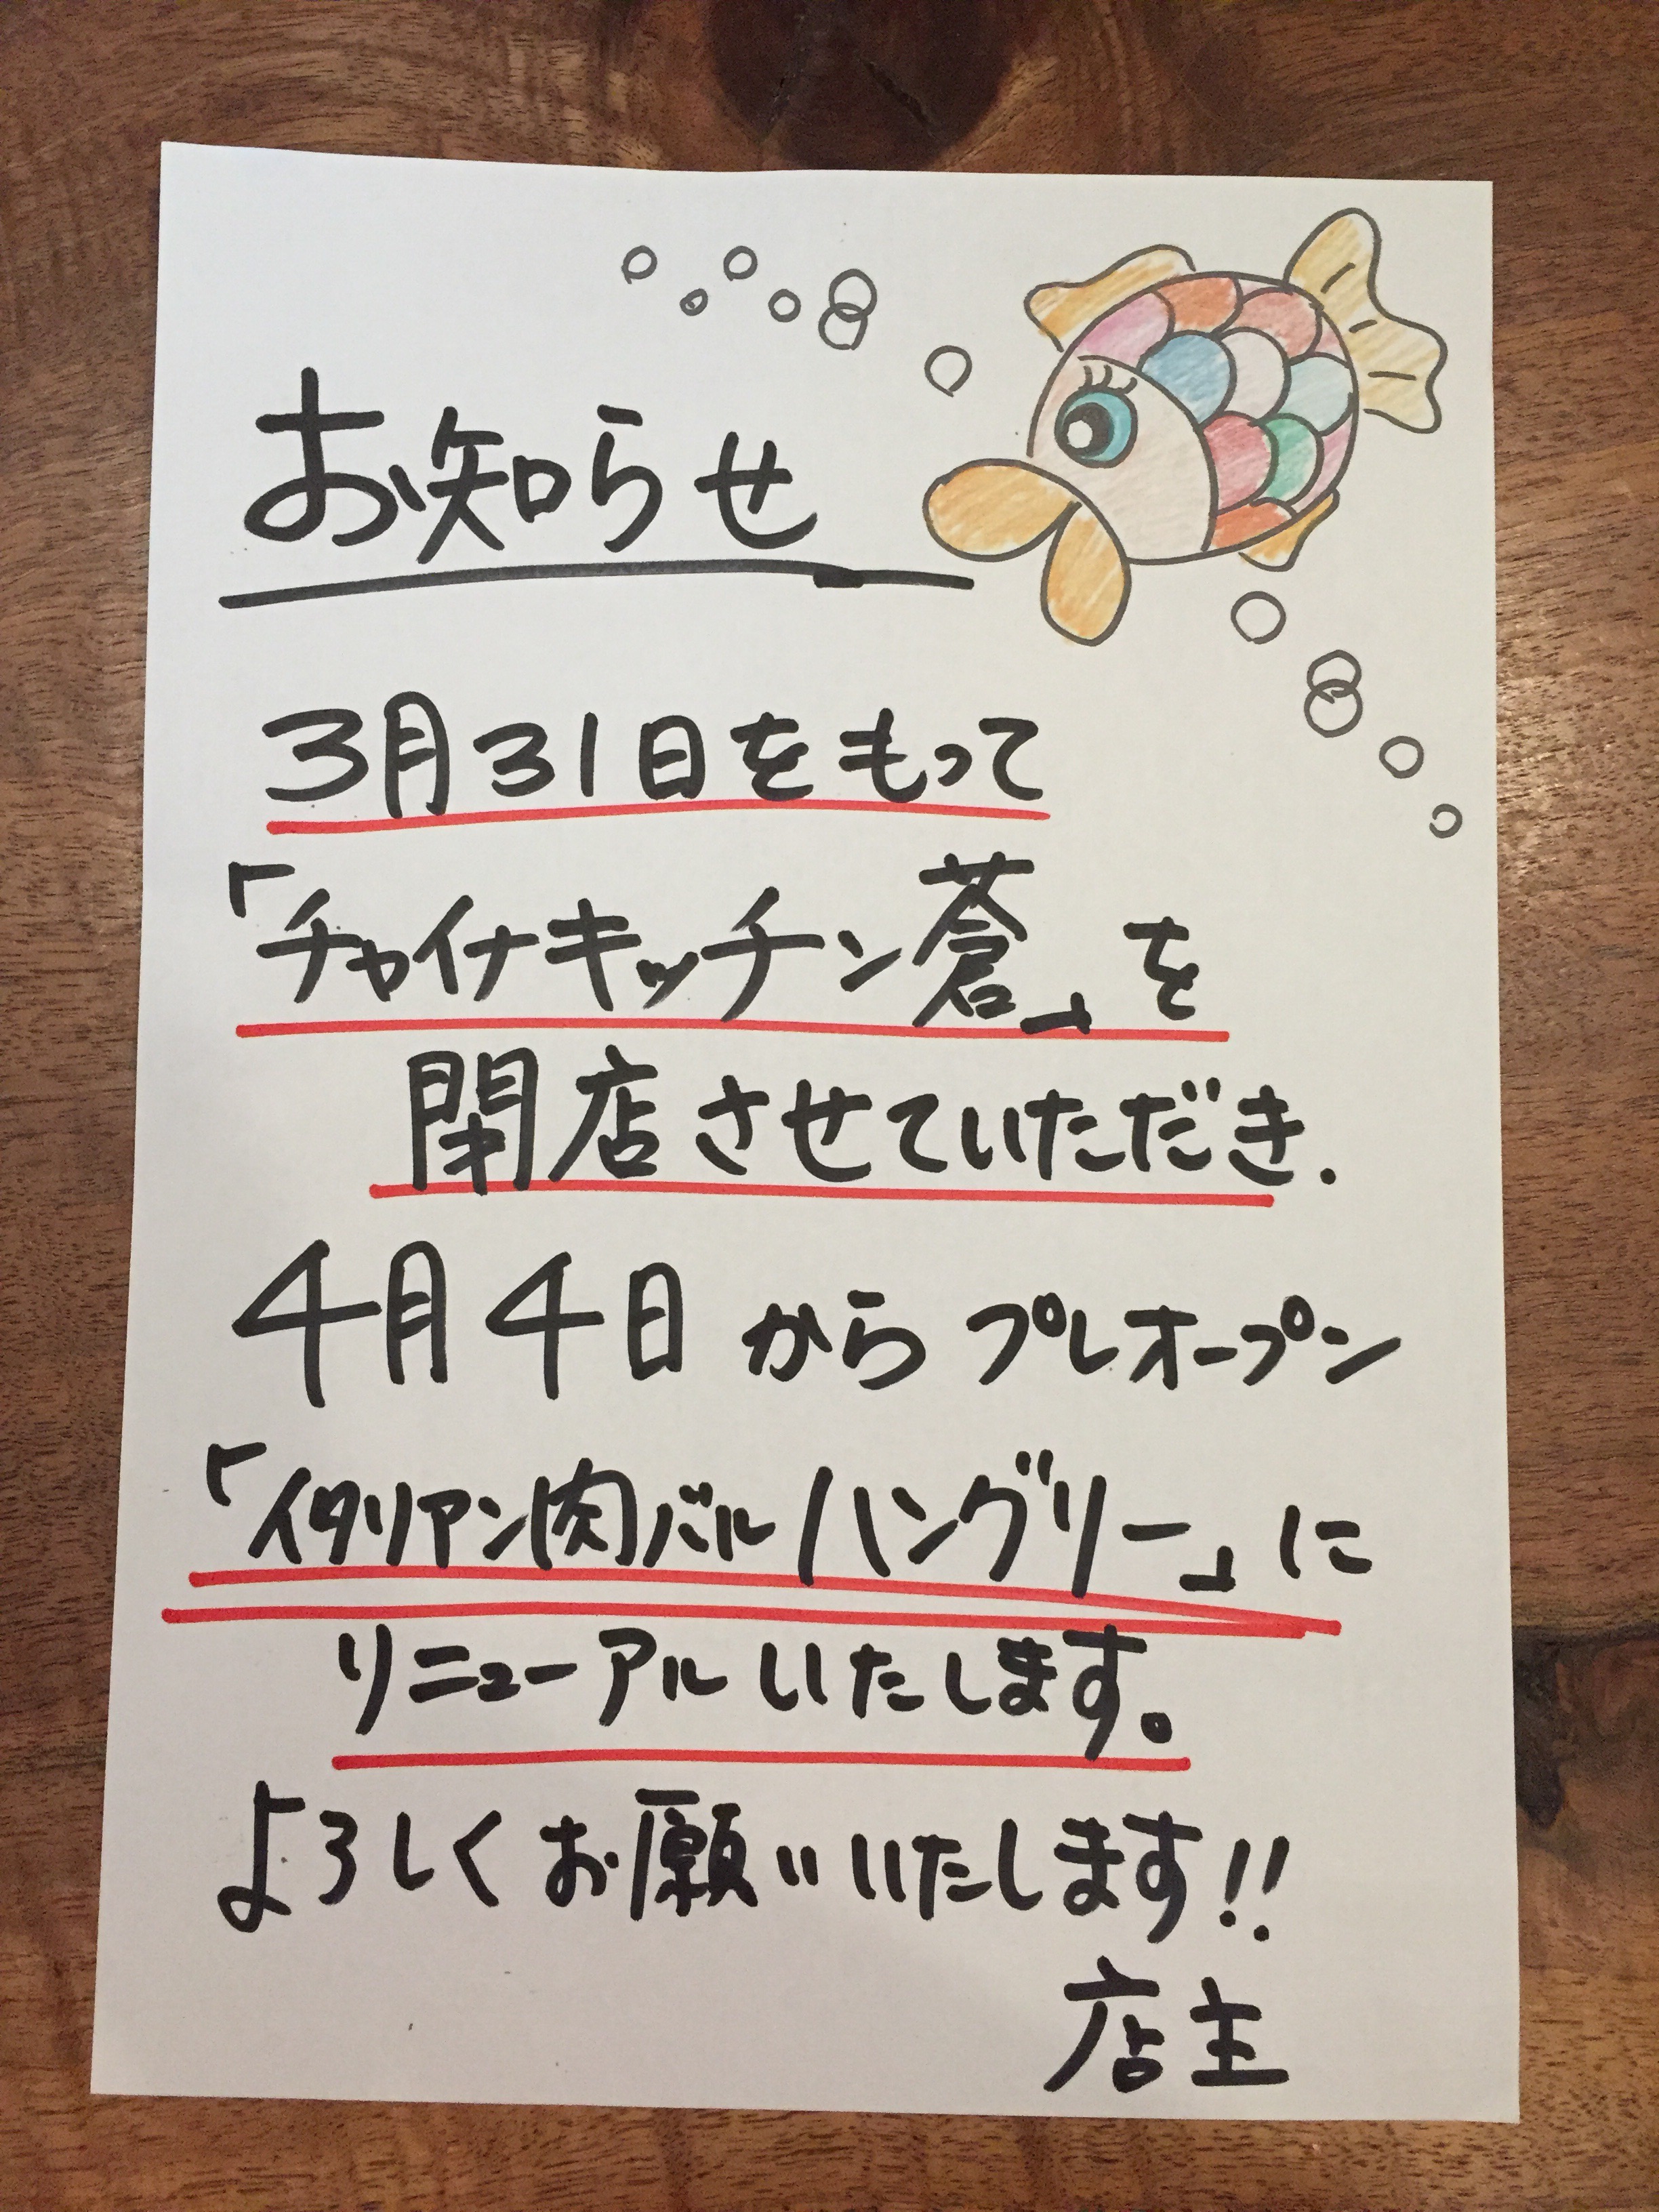 お知らせ
3月31日をもって
「チャイナキッチン蒼」を
閉店させていただき.
4月4日からプレオープン
「イタリアン肉バルハングリー」に
リニューアルいたします。
よろしくお願いいたします!!
店主